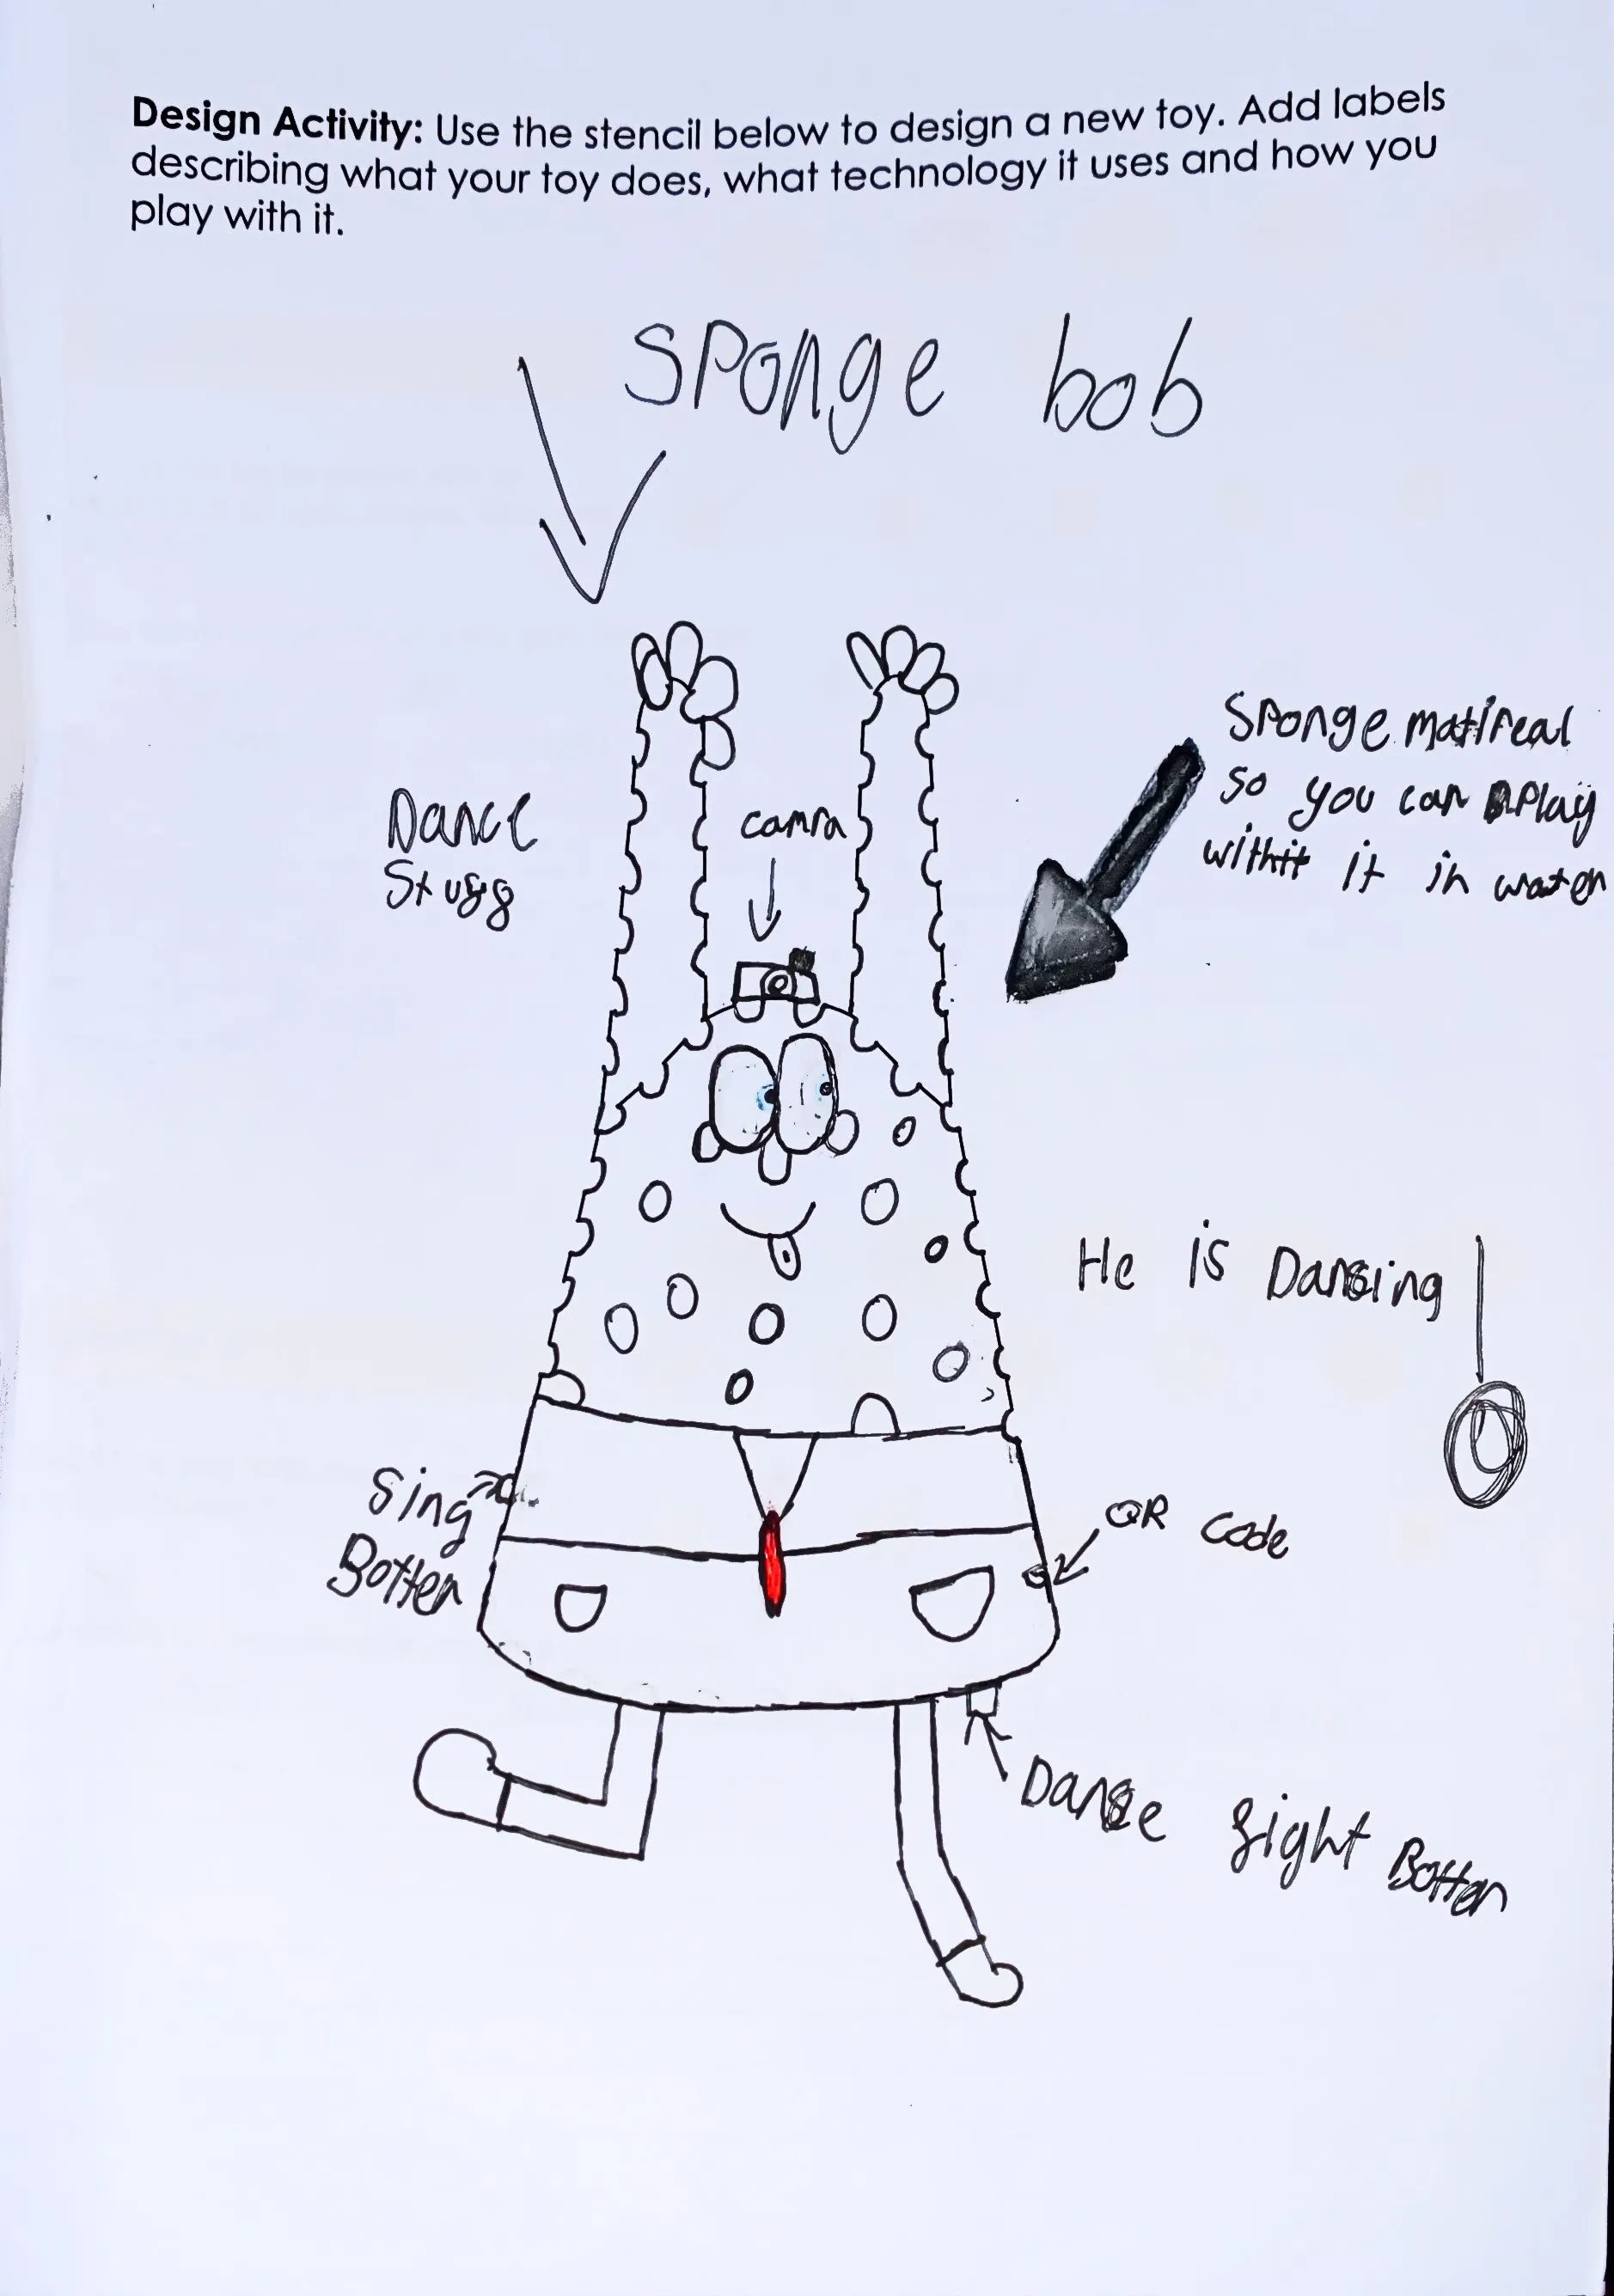 Design Activity: Use the stencil below to design a new toy. Add labels
describing what your toy does, what technology it uses and how you
play with it.
Sponge bob
Sponge matireal
so you can play
with it in water
Dance
Stugg
camra
He is Dancing!
Sing
Botten
QR code
Dance fight Botten